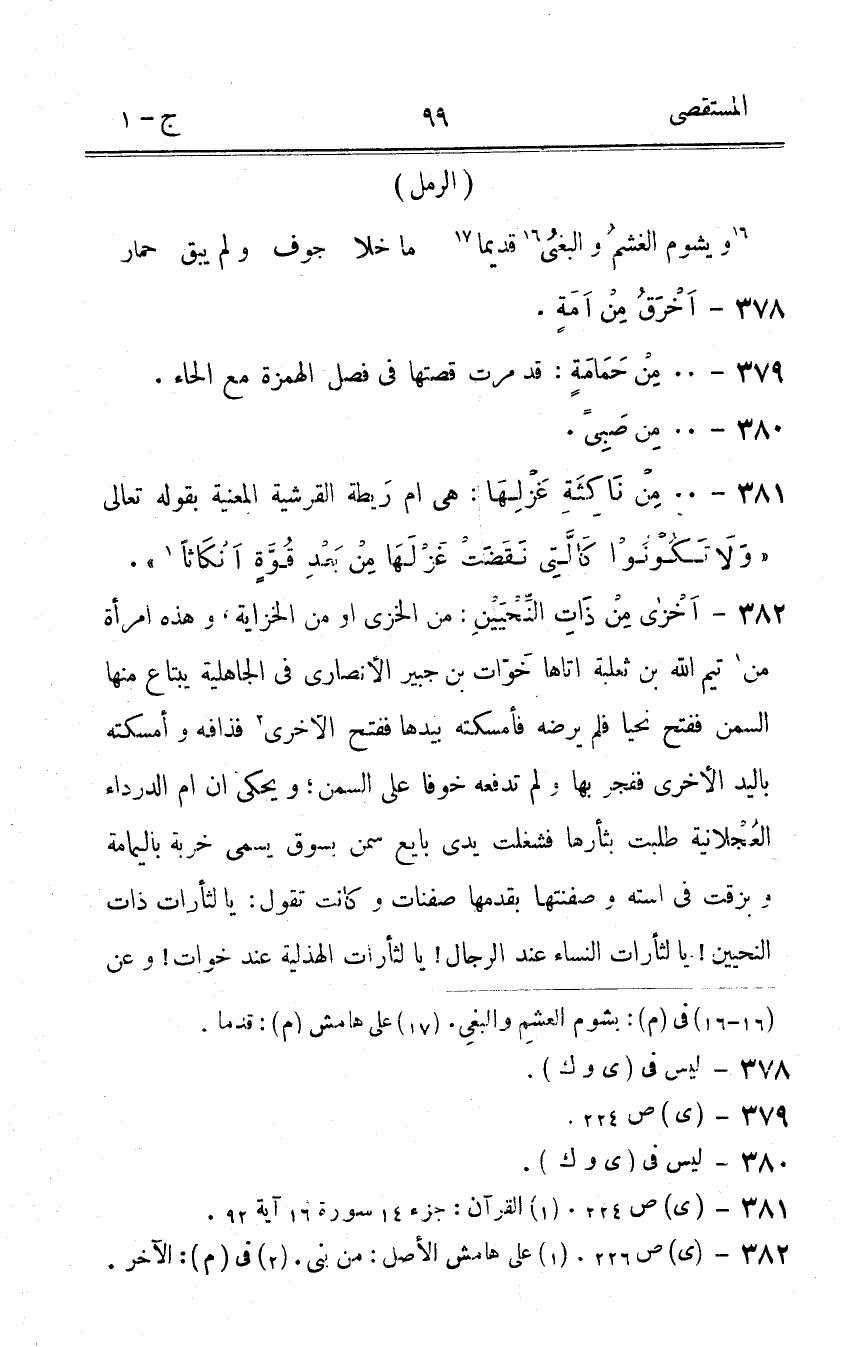 المستقصى ٩٩ ج – ١
( الرمل )
١٦و يشوم الغشمُ و البغىُ١٦ قديما١٧ ما خلا جوف و لم يبق حمار
٣٧٨ – اَخْرَقُ مِنْ اَمَةٍ .
٣٧٩ – ٠٠ مِنْ حَمَامَةٍ : قد مرت قصتها فى فصل الهمزة مع الحاء .
٣٨٠ – ٠٠ مِن صَبِىٍّ .
٣٨١ – ٠٠ مِنْ نَاكِثَةِ غَزْلِهَا : هى ام رَيطة القرشية المعنية بقوله تعالى
« وَلَا تَكُوْنُوْا كَالَّتِى نَقَضَتْ غَزْلَهَا مِنْ بَعْدِ قُوَّةٍ اَنْكَاثاً١ » .
٣٨٢ – اَخْزٰى مِنْ ذَاتِ النِّحْيَيْنِ : من الخزى او من الخزاية ، و هذه امرأة
من١ تيم الله بن ثعلبة اتاها خَوّات بن جبير الأنصارى فى الجاهلية يبتاع منها
السمن ففتح نحيا فلم يرضه فأمسكته بيدها ففتح الآخرى٢ فذاقه و أمسكته
باليد الأخرى ففجر بها و لم تدفعه خوفا على السمن ؛ و يحكى ان ام الدرداء
العُجْلانية طلبت بثأرها فشغلت يدى بايع سمن بسوق يسمى خربة باليمامة
و بزقت فى استه و صفنتها بقدمها صفنات و كانت تقول : يا لثأرات ذات
النحيين ! يا لثأرات النساء عند الرجال ! يا لثأرات الهذلية عند خوات ! و عن
(١٦–١٦) فى (م) : بشوم العشمِ والبغىِ . (١٧) على هامش (م) : قدما .
٣٧٨ – ليس فى (ى و ك ) .
٣٧٩ – (ى) ص ٢٢٤ .
٣٨٠ – ليس فى (ى و ك ) .
٣٨١ – (ى) ص ٢٢٤ . (١) القرآن : جزء ١٤ سورة ١٦ آية ٩٢ .
٣٨٢ – (ى) ص ٢٢٦ . (١) على هامش الأصل : من بنى . (٢) فى (م) : الآخر .